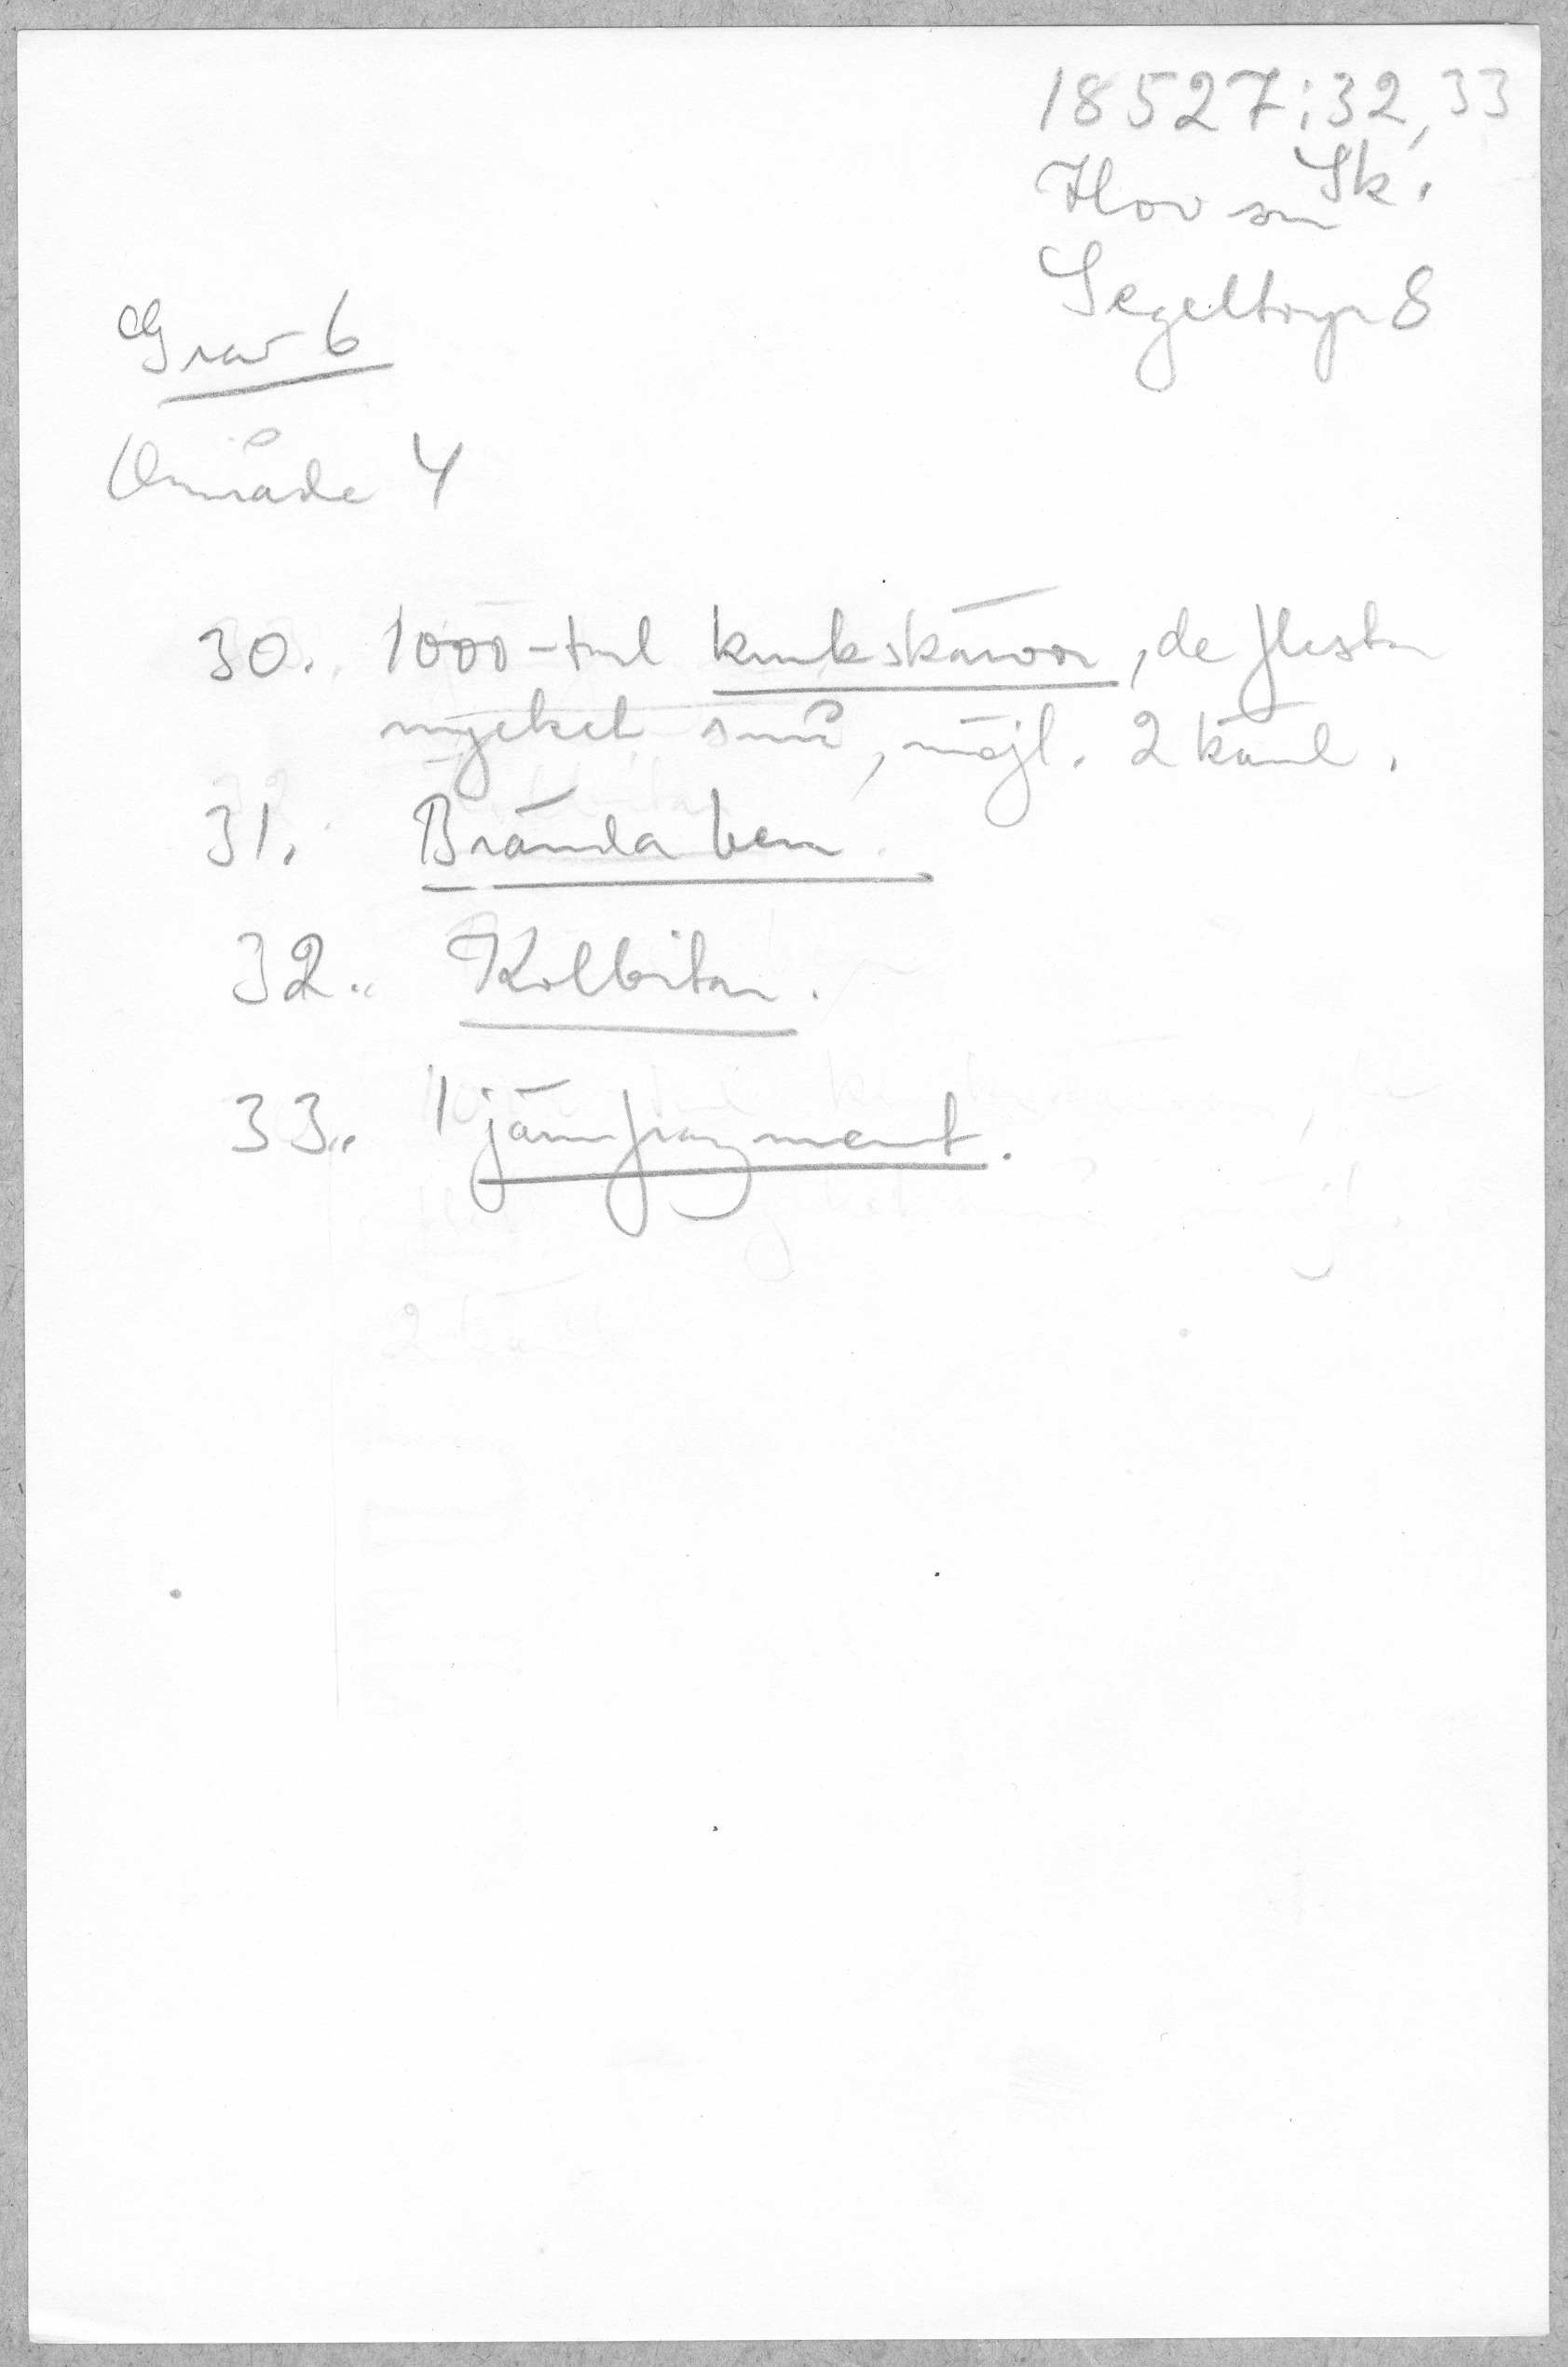 18527:32, 33
Hov sn Sk.
Segeltorp 8
Grav 6
Område 4
30. 1000-tal krukskärvor, de flesta
mycket små, möjl. 2 kärl.
31. Brända ben
32. Kolbitar.
33. 1 järnfragment.